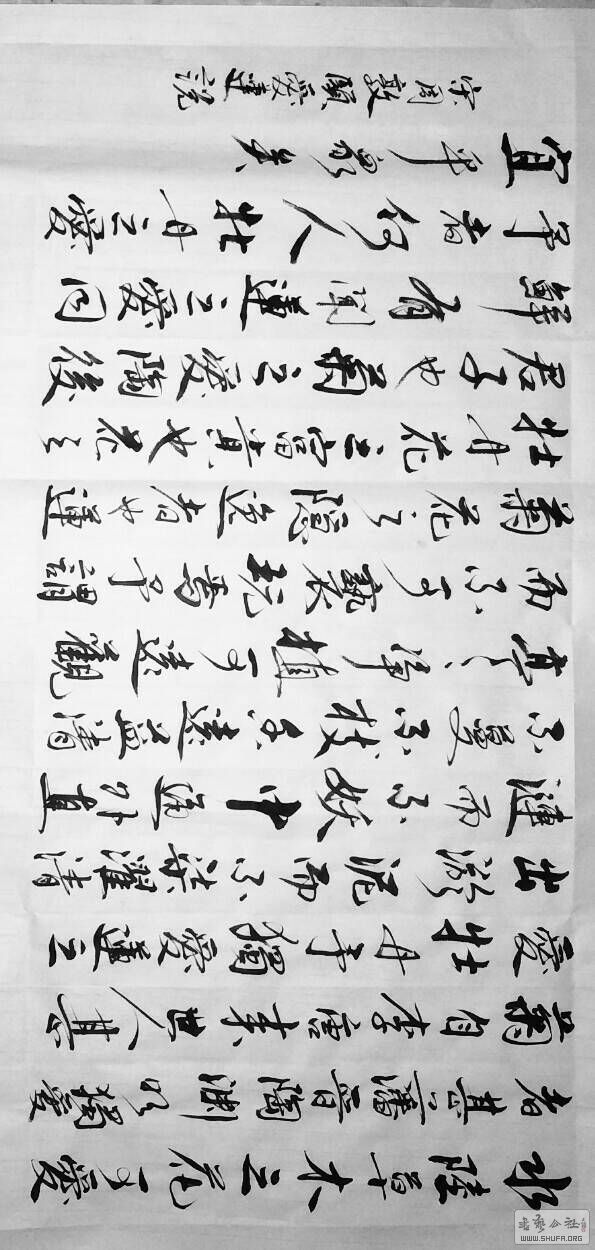 水陸草木之花可愛
者甚蕃晉陶淵明獨愛
菊自李唐來世人甚
愛牡丹予獨愛蓮之
出淤泥而不染濯清
漣而不妖中通外直
不蔓不枝香遠益清
亭々淨植可遠觀
而不可褻玩焉予謂
菊花之隱逸者也蓮
牡丹花之富貴也花之
君子也菊之愛陶後
鮮有聞蓮之愛同
予者何人牡丹之愛
宜乎眾矣
宋周敦頤愛蓮說
WWW.SHUFA.ORG